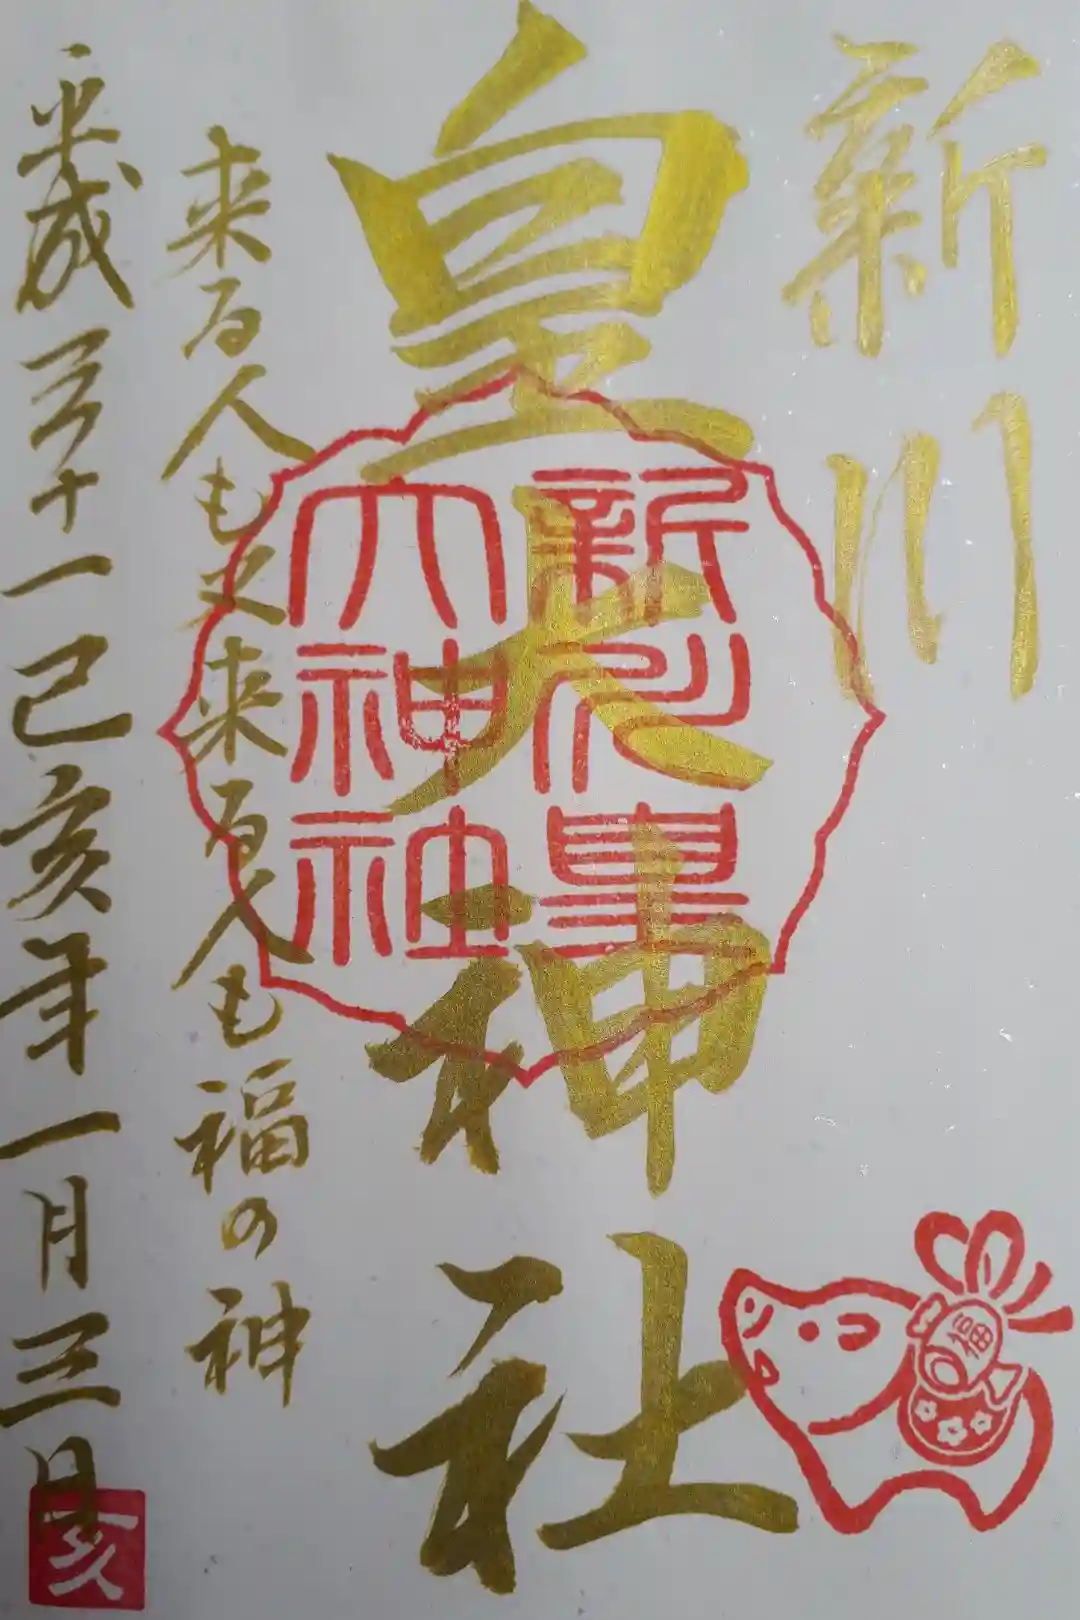 新川
皇大神社
新川皇
大神社
来る人も又来る人も福の神
平成三十一己亥年一月三日
亥
福